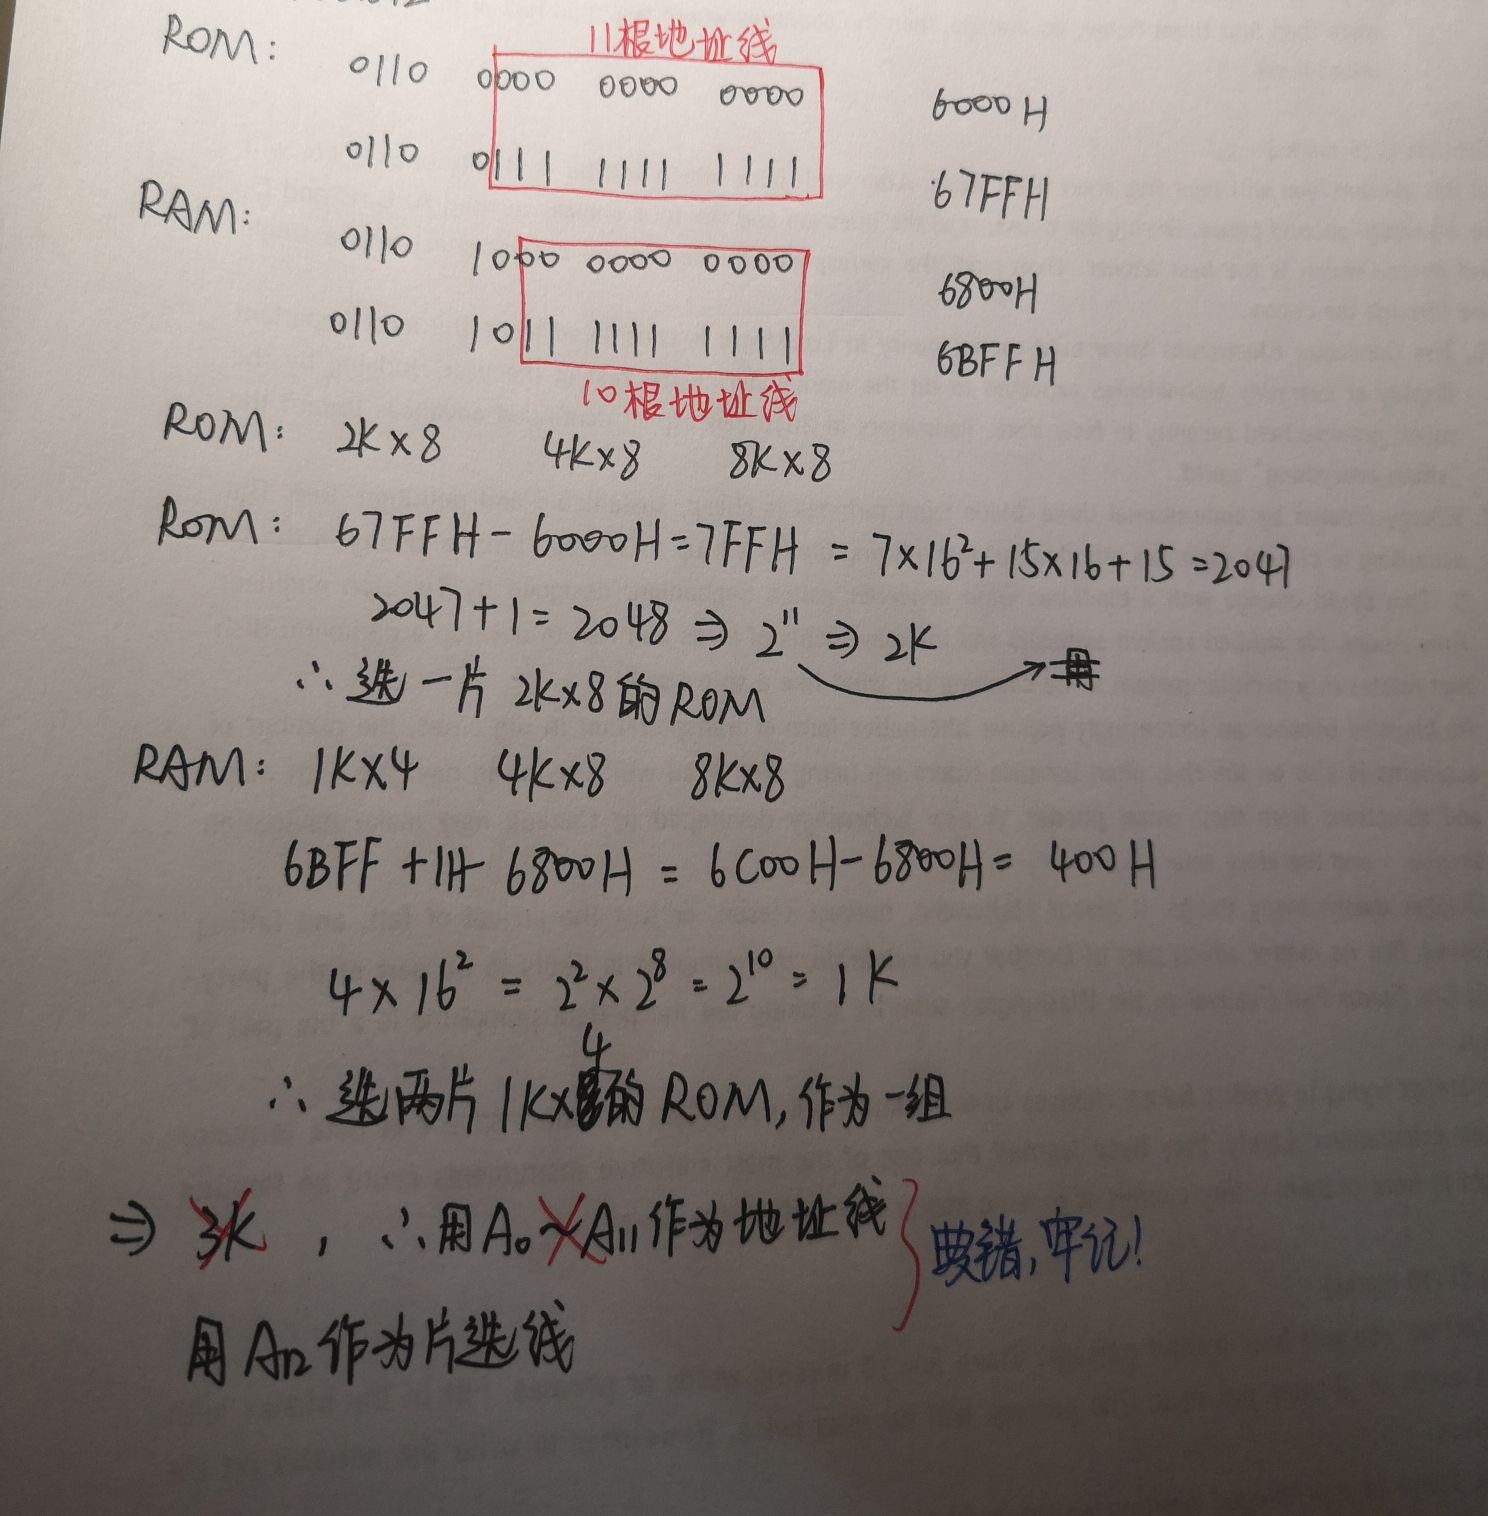 ROM:
11根地址线
0110 0000 0000 0000 6000H
0110 0111 1111 1111 67FFH
RAM:
0110 1000 0000 0000 6800H
0110 1011 1111 1111 6BFFH
10根地址线
ROM: 2K×8 4K×8 8K×8
ROM: 67FFH-6000H=7FFH=7×16²+15×16+15=2047
2047+1=2048⇒2¹¹⇒2K
∴选一片2K×8的ROM
RAM: 1K×4 4K×8 8K×8
6BFF+1H-6800H=6C00H-6800H=400H
4×16²=2²×2⁸=2¹⁰=1K
∴选两片1K×4的ROM,作为一组
⇒3K,∴用A₀~A₁₁作为地址线
错,牢记!
用A₁₂作为片选线